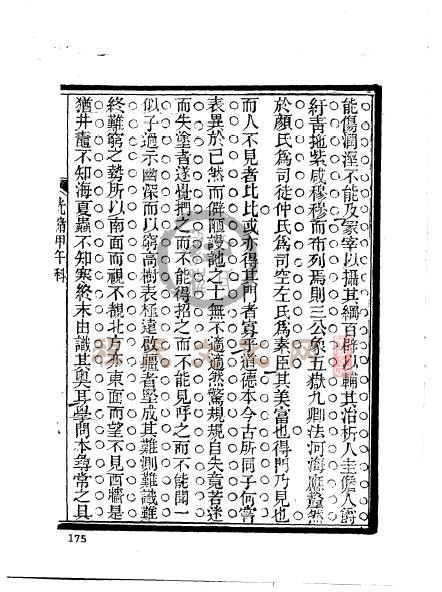 能傷潤溼不能及冢宰以攝其綱百辟以輔其治析人圭儋人爵
紆青拖紫咸穆穆而布列焉則三公象五嶽九卿法河海龐鴻然
於顏氏爲司徒仲氏爲司空左氏爲素臣其美富也得門乃見也
而人不見者比比或亦得其門者寡道德本今古所同子何嘗
表異於已然而僻陋謏訑之士無不適適然驚規規自失竟若迷
而失塗者遂覺挹之而不能得招之而不能見呼之而不能聞一
似子過示幽深而以窮高樹表極遠啟疆者堅成其難測難識難
終難窮之勢所以南面而視不覩北方東面而望不見西牆是
猶井鼃不知海夏蟲不知寒終末由識其奧耳學問本尋常之具
光緒甲午科
175